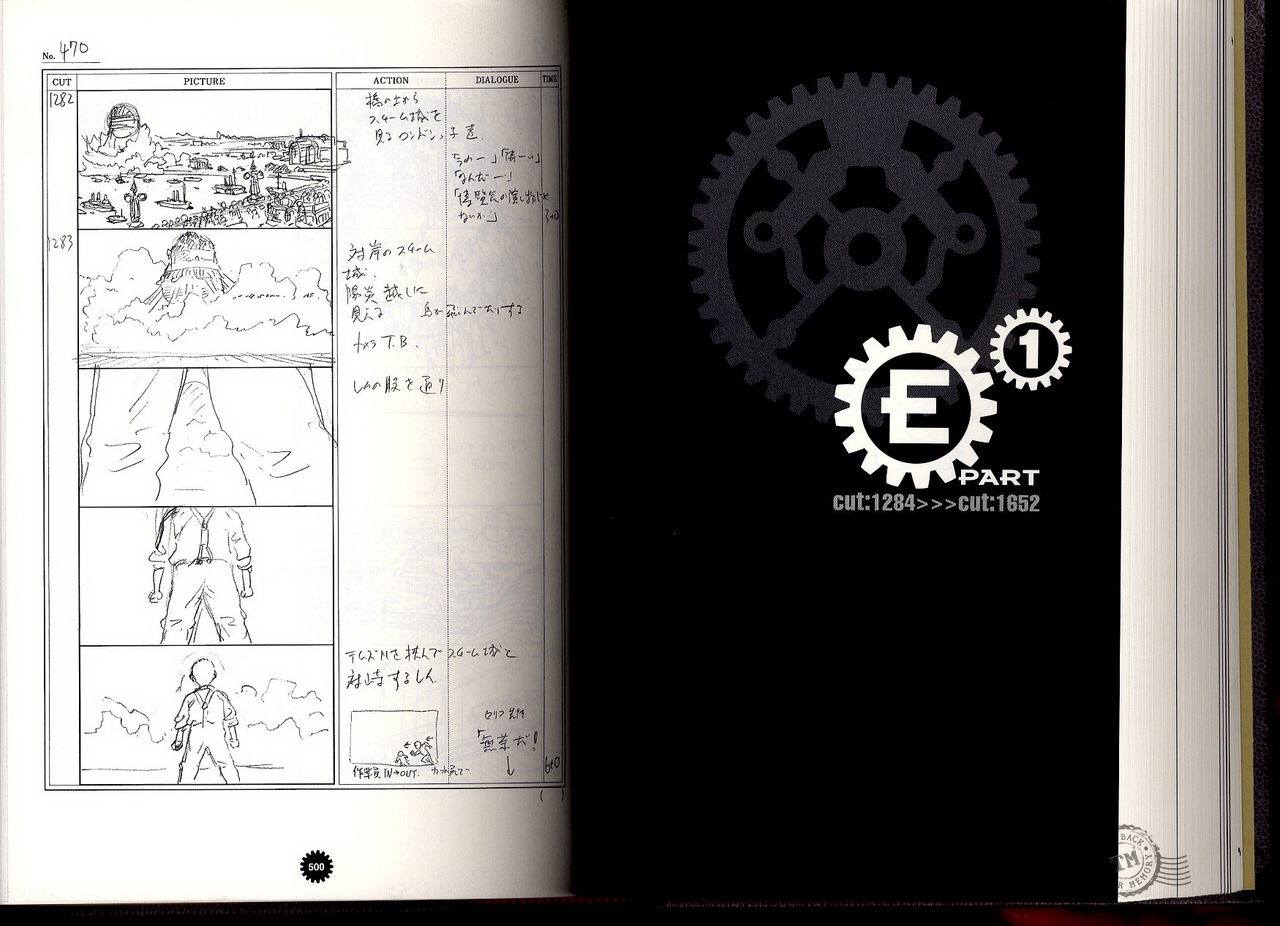 No. 470
CUT PICTURE ACTION DIALOGUE TIME
1282
橋の上から
スチーム城を
見るロンドンっ子達
「うわー」「凄ーい」
「なんだー」
「博覧会の演し物じゃ
ないか」
3+0
1283
対岸のスチーム
城、
陽炎越しに
見える 鳥が飛んでたりする
カメラT.B.
レイの股を通り
テムズ川を挟んでスチーム城と
対峙するレイ
セリフ先行
「無茶だ!
作業員 IN→OUT.
6+0
( )
500
1
E
PART
cut:1284>>>cut:1652
BACK
TM
R MEMORY